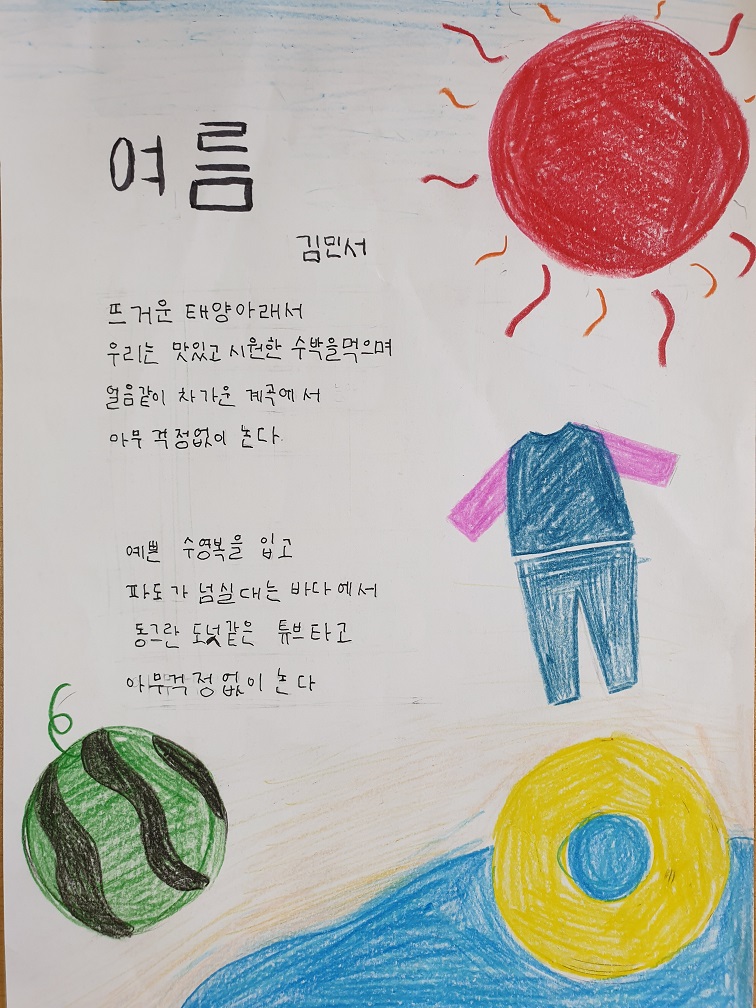 여름
김민서
뜨거운 태양아래서
우리는 맛있고 시원한 수박을먹으며
얼음같이 차가운 계곡에서
아무 걱정없이 논다.
예쁜 수영복을 입고
파도가 넘실대는 바다에서
동그란 도넛같은 튜브타고
아무걱정없이 논다